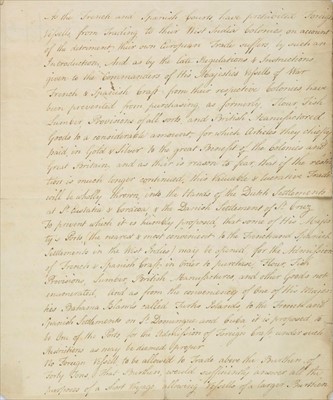 As the French and Spanish Courts have prohibited Foreign
Vessels from Trading to their West India Colonies on account
of the detriment their own European Trade suffers by such an
Introduction, And as by the late Regulations & Instructions
given to the Commanders of His Majestys Vessels of War
French & Spanish Craft from their respective Colonies have
been prevented from purchasing as formerly Flour Fish
Lumber Provisions of all sorts and British Manufactured
Goods to a considerable amount, for which Articles they chiefly
paid in Gold & Silver to the great Benefit of the Colonies and
Great Britain, and as there is reason to fear that if the
is much longer continued, this Valuable & lucrative Trade
will be wholly thrown into the Hands of the Dutch Settlements
at St Eustatia & Curacao & the Danish Settlements of St Cruz
To prevent which it is humbly proposed, that some of His Majes
tys Ports (the nearest & most convenient to the French and Spanish
Settlements in the West Indies) may be opened for the Admission
of French & Spanish Craft in order to purchase Flour Fish
Provisions, Lumber, British Manufactures, and other Goods not
enumerated, And as from the conveniency of One of His Majestys
Bahama Islands called Turks Islands to the French and
Spanish Settlements on St Domingue and Cuba it is proposed to
be One of the Ports for the Admission of Foreign Craft under such
Restrictions as may be deemed proper
No Foreign Vessel to be allowed to Trade above the Burthen of
Tons (that Burthen would sufficiently answer all the
purposes of a short Voyage allowing Vessels of a larger Burthen